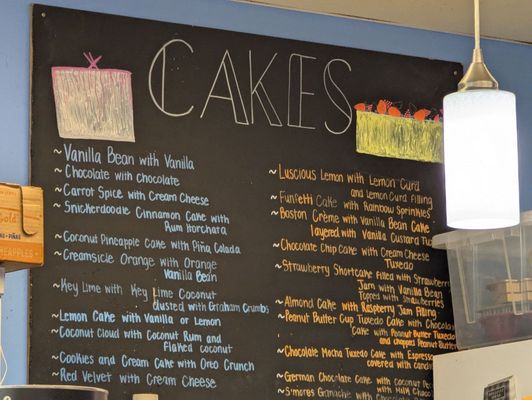 CAKES
~Vanilla Bean with Vanilla
~Chocolate with Chocolate
~Carrot Spice with Cream Cheese
~Snickerdoodle Cinnamon Cake with
Rum Horchara
~Coconut Pineapple Cake with Piña Colada
~Creamsicle Orange with Orange
Vanilla Bean
~Key Lime with Key Lime Coconut
dusted with Graham Crumbs
~Lemon Cake with Vanilla or Lemon
~Coconut Cloud with Coconut Rum and
Flaked coconut
~Cookies and Cream Cake with Oreo Crunch
~Red Velvet with Cream Cheese
~Luscious Lemon with Lemon Curd
and Lemon Curd Filling
~Funfetti Cake with Rainbow Sprinkles
~Boston Crème with Vanilla Bean Cake
layered with Vanilla Custard
~Chocolate Chip Cake with Cream Cheese
Tuxedo
~Strawberry Shortcake Filled with Strawberry
Jam with Vanilla Bean
Topped with Strawberries
~Almond Cake with Raspberry Jam Filling
~Peanut Butter Cup Tuxedo Cake with Chocolate
Cake with Peanut Butter Tuxedo
and chopped Peanut Butter
~Chocolate Mocha Tuxedo Cake with Espresso
covered with
~German Chocolate Cake with Coconut
~S'mores Ganache with Chocolate
Gold